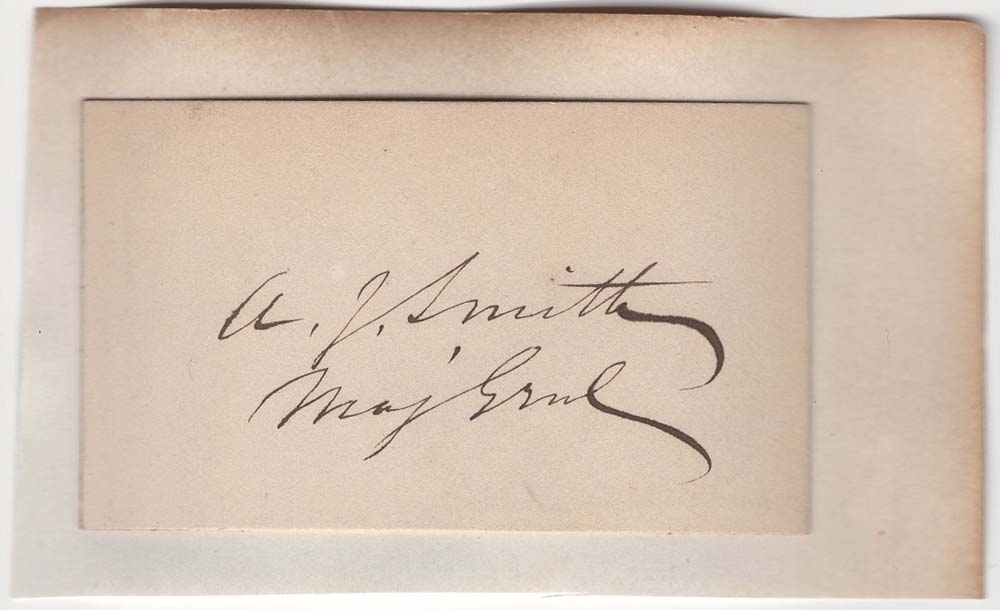 A. J. Smith
Maj' Genl